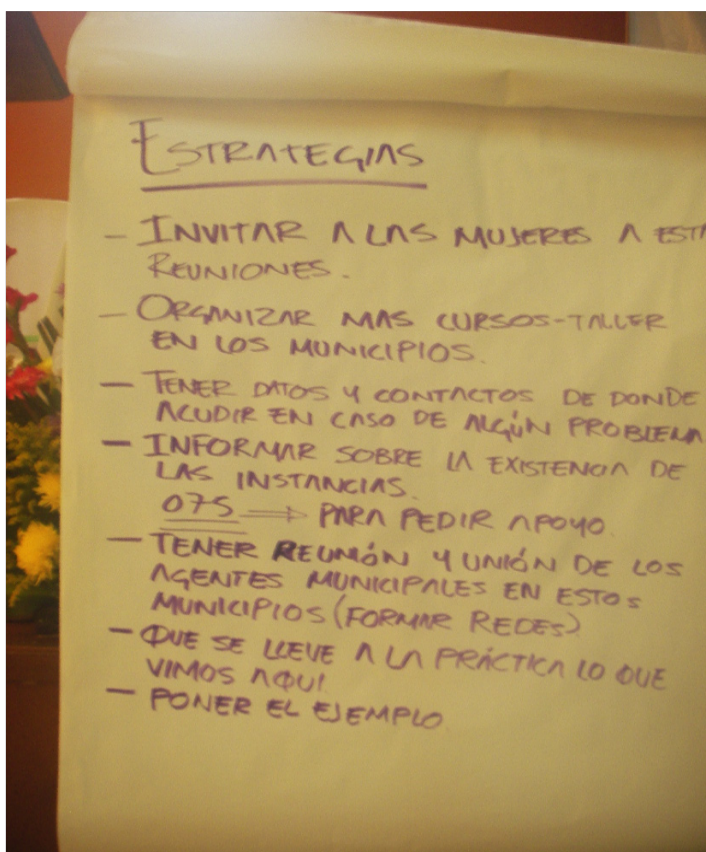 ESTRATEGIAS
- INVITAR A LAS MUJERES A ESTA
REUNIONES.
- ORGANIZAR MAS CURSOS-TALLER
EN LOS MUNICIPIOS.
- TENER DATOS Y CONTACTOS DE DONDE
ACUDIR EN CASO DE ALGÚN PROBLEMA
- INFORMAR SOBRE LA EXISTENCIA DE
LAS INSTANCIAS.
075 ⇒ PARA PEDIR APOYO.
- TENER REUNIÓN Y UNIÓN DE LOS
AGENTES MUNICIPALES EN ESTOS
MUNICIPIOS (FORMAR REDES)
- QUE SE LLEVE A LA PRÁCTICA LO QUE
VIMOS AQUI.
- PONER EL EJEMPLO